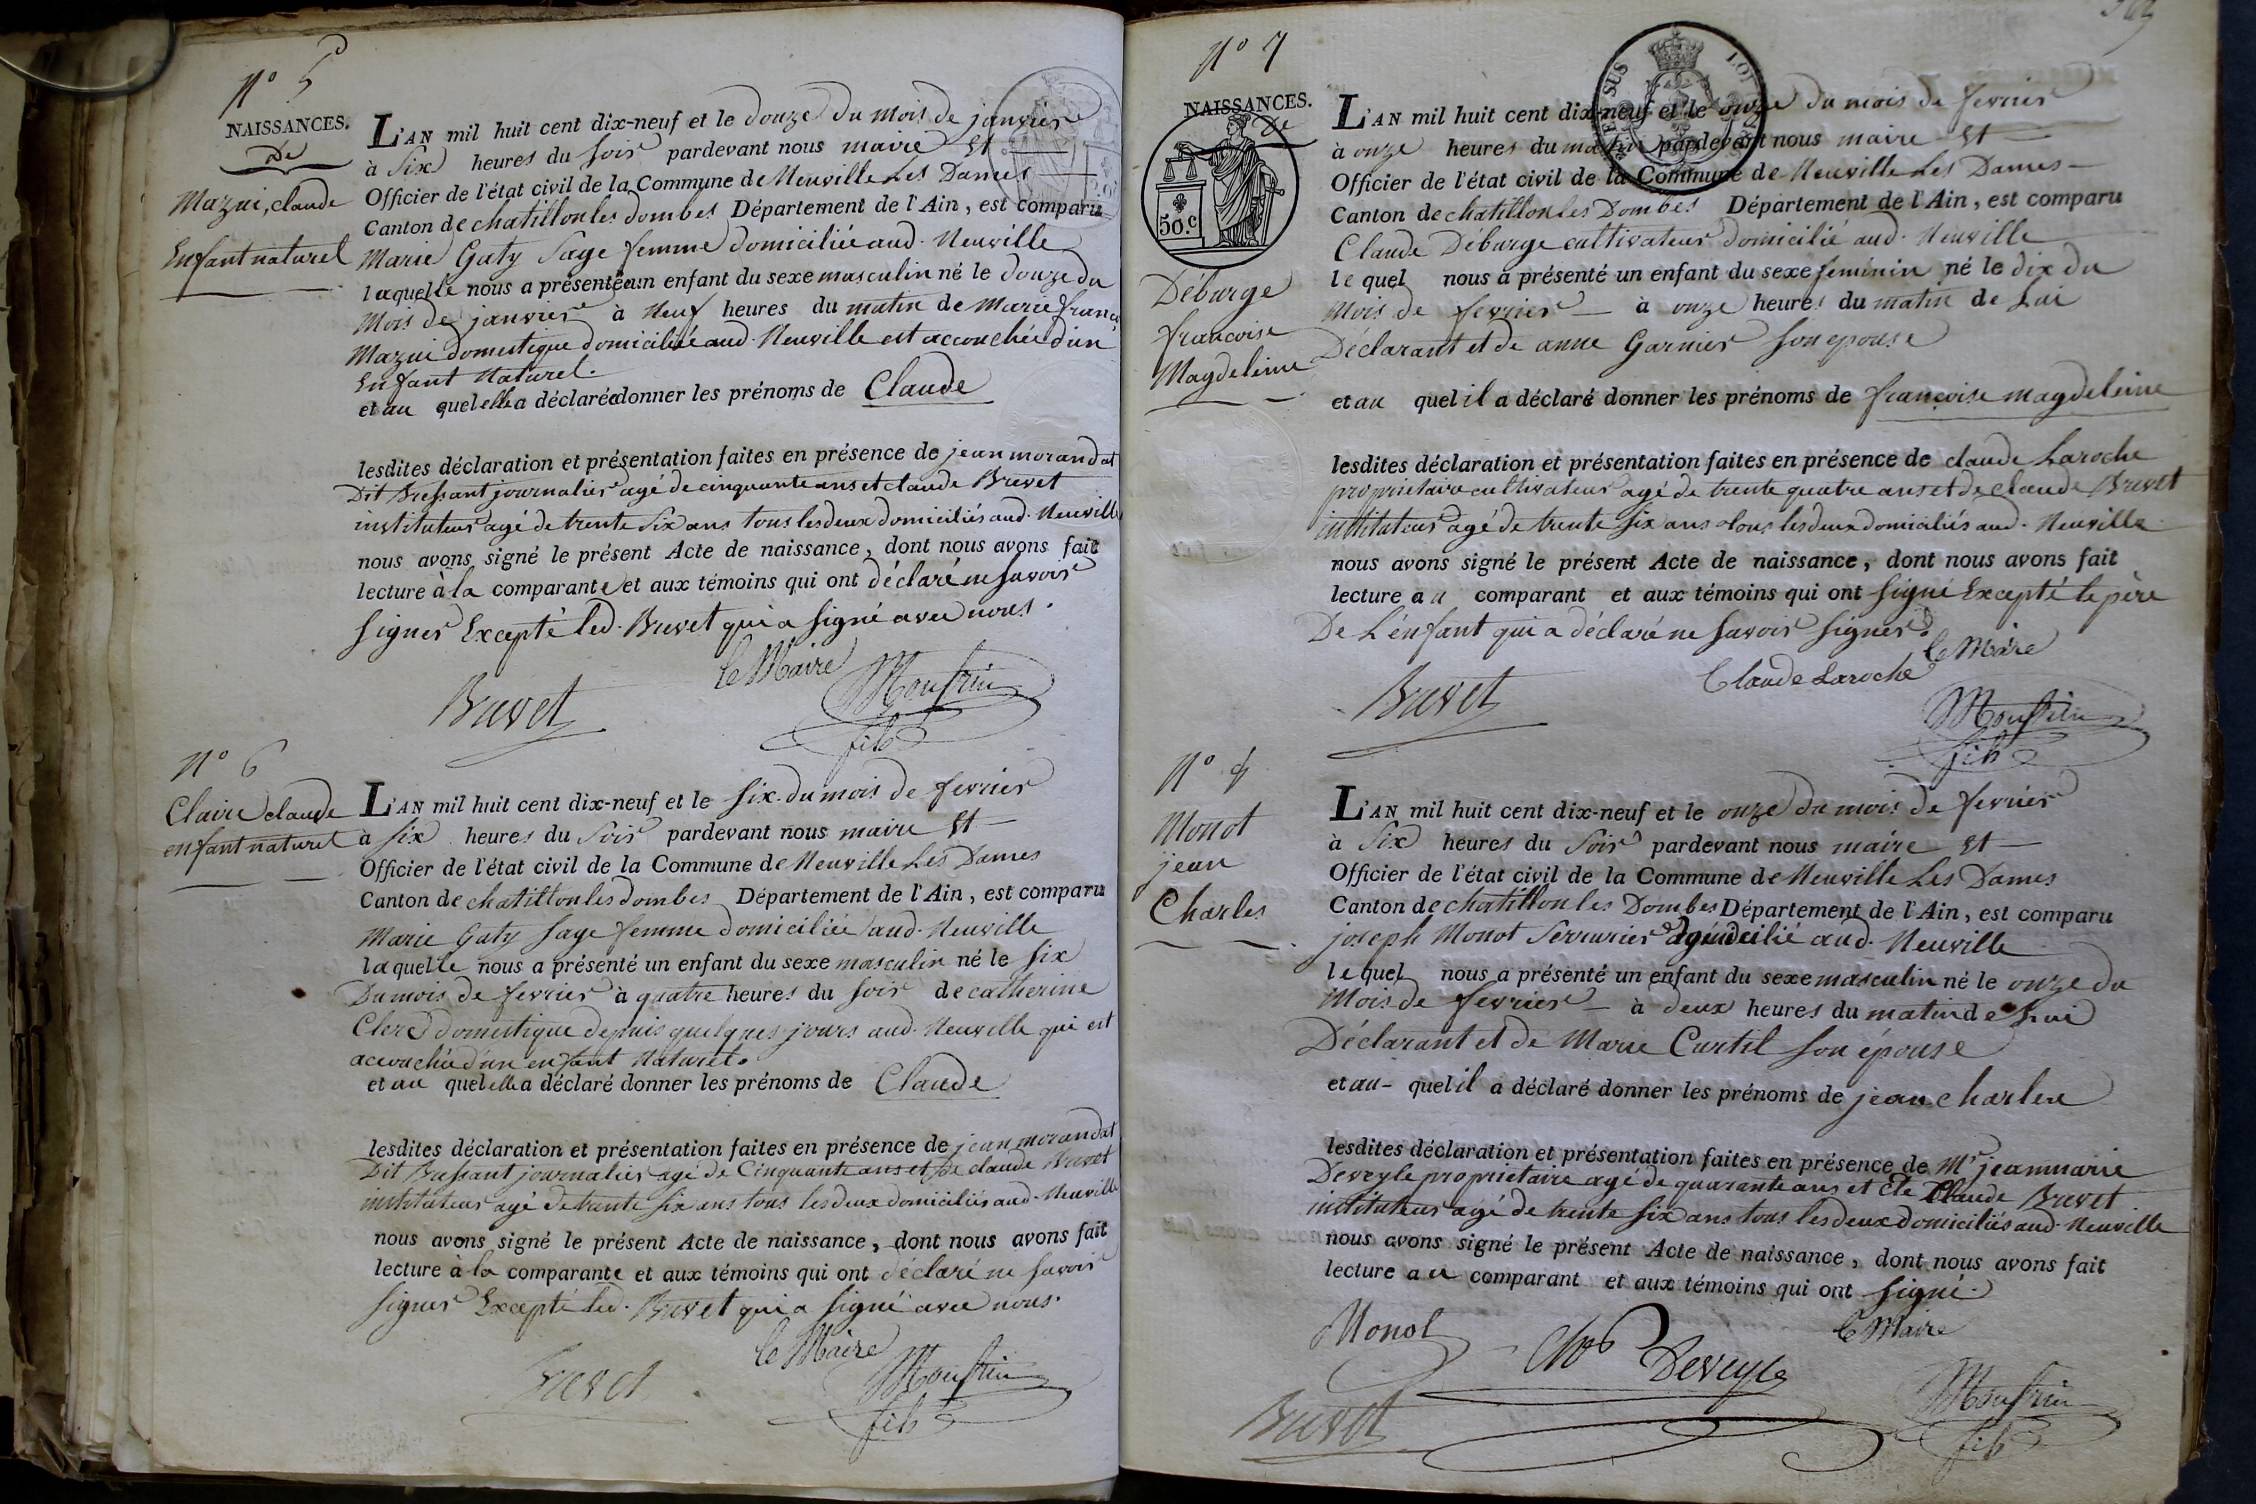 N° 5
NAISSANCES.
De
Mazui, claude
Enfant naturel
L'AN mil huit cent dix-neuf et le douze du mois de janvier
à Six heures du soir pardevant nous maire et
Officier de l'état civil de la Commune de Neuville Les Dames
Canton de chatillon les dombes Département de l'Ain, est comparu
Marie Gaty Sage femme domiciliée aud. Neuville
laquelle nous a présenté un enfant du sexe masculin né le douze du
Mois de janvier à Neuf heures du matin de Marie
Mazui domestique domiciliée aud. Neuville est accouchée d'un
Enfant Naturel.
et au quel elle a déclaré donner les prénoms de Claude
lesdites déclaration et présentation faites en présence de jean morandat
Dit Bressant journalier agé de cinquante ans et claude Brevet
instituteur agé de trente Six ans tous les deux domiciliés aud. Neuville
nous avons signé le présent Acte de naissance, dont nous avons fait
lecture à la comparante et aux témoins qui ont déclaré ne savoir
signer Excepté led. Brevet qui a signé avec nous.
le Maire
Brevet
fils
N° 6
Claire claude
enfant naturel
L'AN mil huit cent dix-neuf et le six du mois de fevrier
à six heures du soir pardevant nous maire et
Officier de l'état civil de la Commune de Neuville Les Dames
Canton de chatillon les dombes Département de l'Ain, est comparu
Marie Gaty sage femme domiciliée aud. Neuville
laquelle nous a présenté un enfant du sexe masculin né le six
Du mois de fevrier à quatre heures du soir de catherine
Clerc domestique depuis quelques jours aud. Neuville qui est
accouchée d'un enfant Naturel.
et au quel elle a déclaré donner les prénoms de Claude
lesdites déclaration et présentation faites en présence de jean morandat
Dit Bressant journalier agé de Cinquante ans et de claude Brevet
instituteur agé de trente six ans tous les deux domiciliés aud. Neuville
nous avons signé le présent Acte de naissance, dont nous avons fait
lecture à la comparante et aux témoins qui ont déclaré ne savoir
signer Excepté led. Brevet qui a signé avec nous.
le Maire
Brevet
fils
N° 7
NAISSANCES.
De
50.c
Déburge
francoise
Magdeleine
L'AN mil huit cent dix-neuf et le onze du mois de fevrier
à onze heures du matin pardevant nous maire et
Officier de l'état civil de la Commune de Neuville Les Dames
Canton de chatillon les Dombes Département de l'Ain, est comparu
Claude Déburge cultivateur domicilié aud. Neuville
le quel nous a présenté un enfant du sexe feminin né le dix du
Mois de fevrier à onze heures du matin de Lui
Déclarant et de anne Garnier son epouse
et au quel il a déclaré donner les prénoms de françoise magdeleine
lesdites déclaration et présentation faites en présence de claude Laroche
proprietaire cultivateur agé de trente quatre ans et de claude Brevet
instituteur agé de trente six ans tous les deux domiciliés aud. Neuville
nous avons signé le présent Acte de naissance, dont nous avons fait
lecture au comparant et aux témoins qui ont signé Excepté le père
De L'enfant qui a déclaré ne savoir signer.
le Maire
Claude Laroche
Brevet
fils
N°
Monot
jean
Charles
L'AN mil huit cent dix-neuf et le onze du mois de fevrier
à Six heures du Soir pardevant nous maire et
Officier de l'état civil de la Commune de Neuville Les Dames
Canton de chatillon les Dombes Département de l'Ain, est comparu
joseph Monot Serrurier aud. Neuville
le quel nous a présenté un enfant du sexe masculin né le onze du
Mois de fevrier à deux heures du matin de Lui
Déclarant et de Marie Curtil son épouse
et au quel il a déclaré donner les prénoms de jean charles
lesdites déclaration et présentation faites en présence de Mr jean marie
Deveyle proprietaire agé de quarante ans et de Claude Brevet
instituteur agé de trente six ans tous les deux domiciliés aud. Neuville
nous avons signé le présent Acte de naissance, dont nous avons fait
lecture au comparant et aux témoins qui ont signé.
Monot
le Maire
Deveyle
Brevet
fils